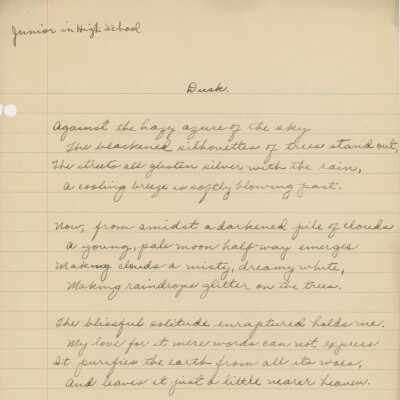 Junior in High School
Dusk.
Against the hazy azure of the sky
The blackened silhouettes of trees stand out,
The streets all glisten silver with the rain,
A cooling breeze is softly blowing past.
Now, from amidst a darkened pile of clouds
A young, pale moon half-way emerges
Making clouds a misty, dreamy white,
Making raindrops glitter on the trees.
The blissful solitude enraptured holds me.
My love for it mere words can not express
It purifies the earth from all its woes,
And leaves it just a little nearer heaven.